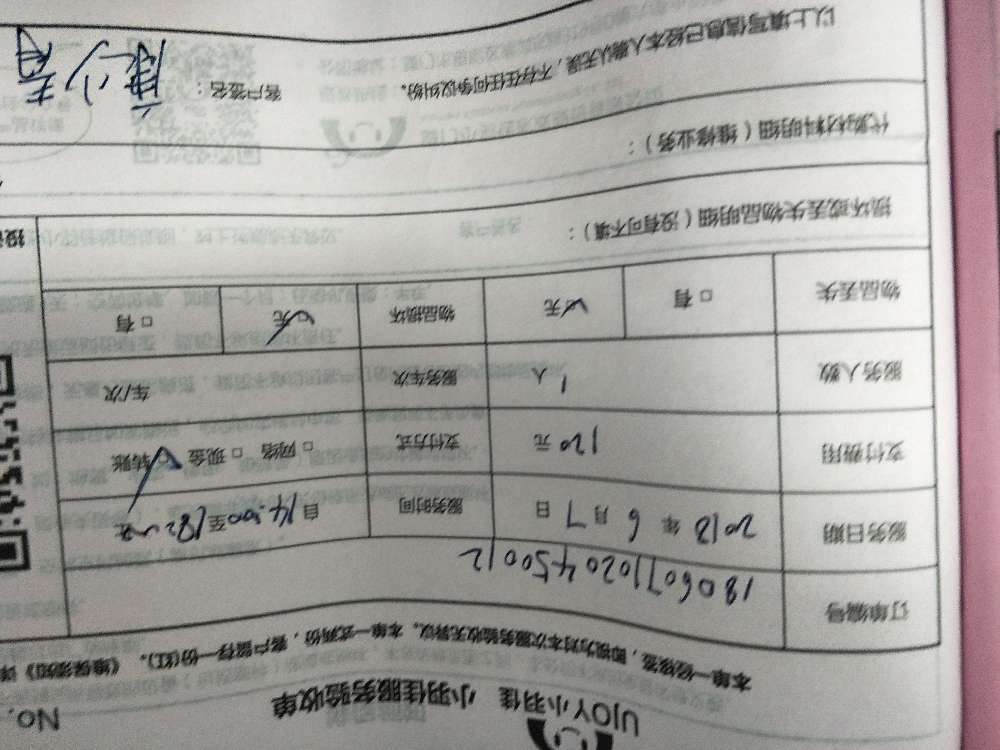 UJOY小羽佳 小羽佳服务验收单 No.
本单一经核签，即视为对本次服务验收无异议。本单一式两份，客户留存一份(红)。《维保须知》详
订单编号 180607102045 0012
服务日期 2018 年 6 月 7 日 服务时间 自 14:00 至 18
支付费用 120 元 支付方式 □ 网络 □ 现金 转账
服务人数 1 人 服务车次 车/次
物品丢失 □ 有 无 物品损坏 □ 无 □ 有
损坏或丢失物品明细（没有可不填）：
代购材料明细（维修业务）：
以上填写信息已经本人确认无误，不存在任何争议纠纷。 客户签名：